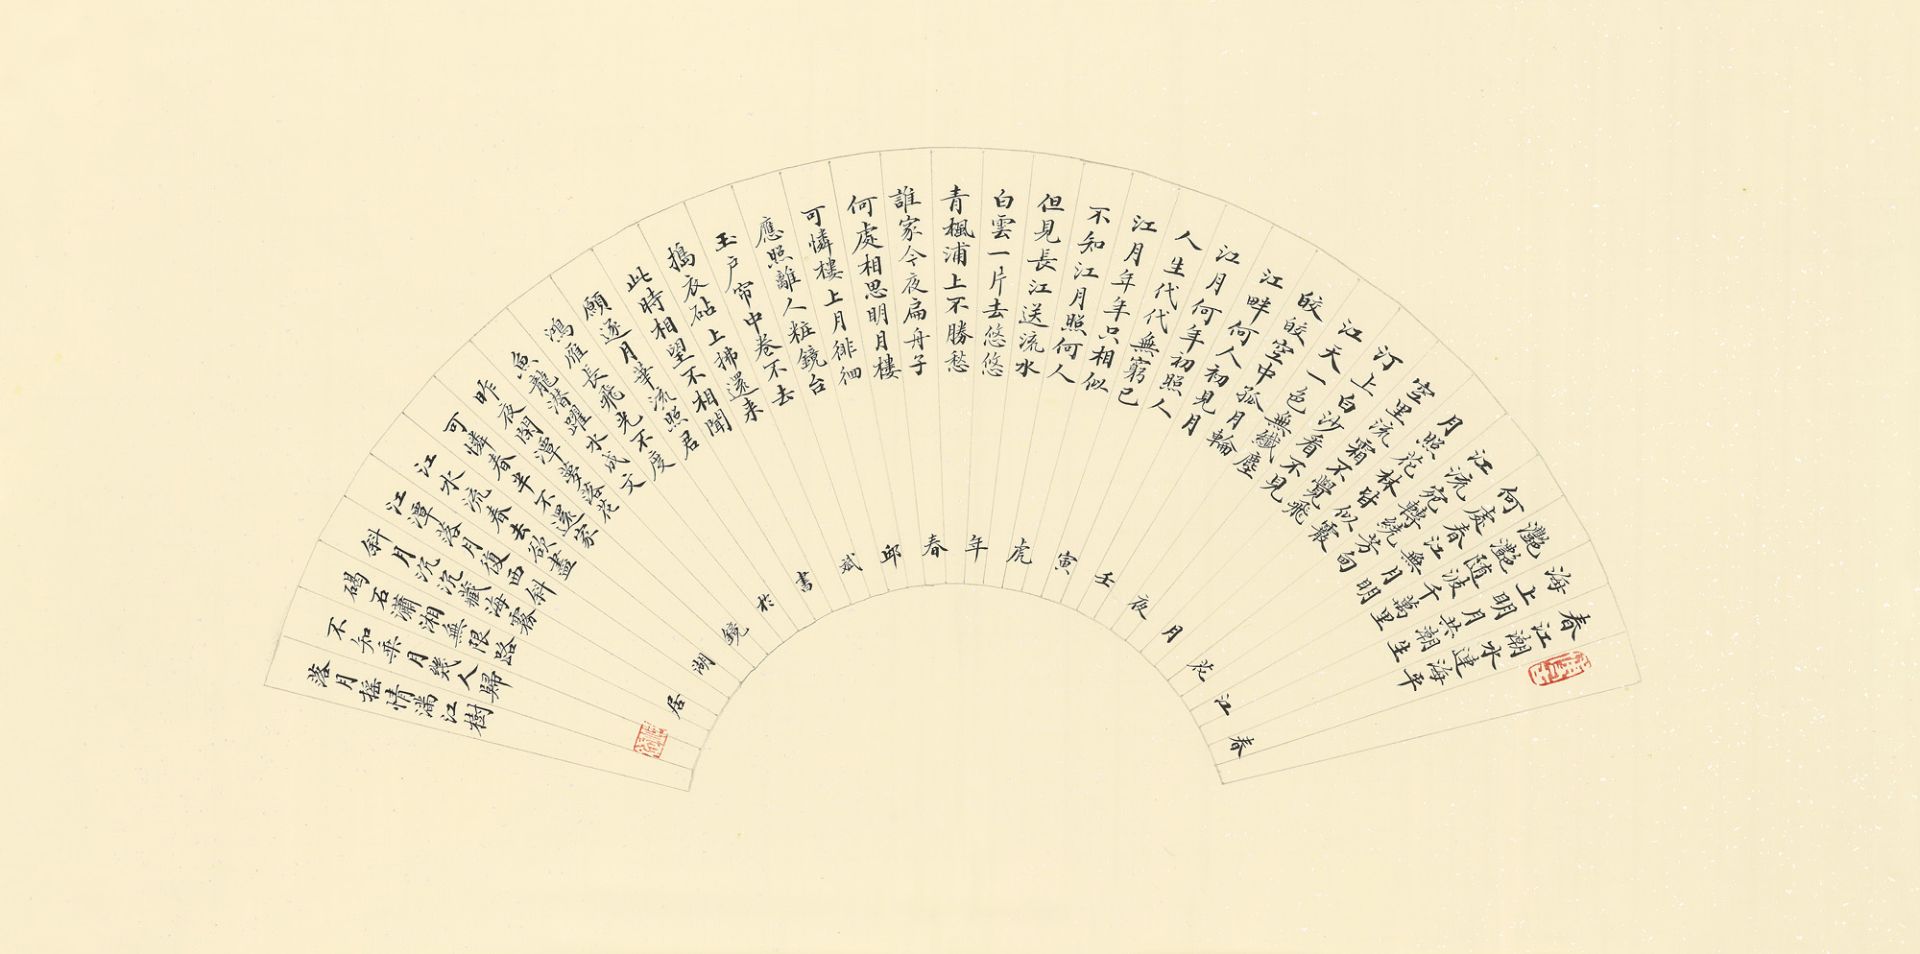 春江潮水連海平
海上明月共潮生
灧灧随波千萬里
何處春江無月明
江流宛轉繞芳甸
月照花林皆似霰
空里流霜不覺飛
汀上白沙看不見
江天一色無纖塵
皎皎空中孤月輪
江畔何人初見月
江月何年初照人
人生代代無窮已
江月年年只相似
不知江月照何人
但見長江送流水
白雲一片去悠悠
青楓浦上不勝愁
誰家今夜扁舟子
何處相思明月樓
可憐樓上月徘徊
應照離人粧鏡台
玉户帘中卷不去
搗衣砧上拂還来
此時相望不相聞
願逐月華流照君
鴻雁長飛光不度
魚龍潜躍水成文
昨夜閑潭夢落花
可憐春半不還家
江水流春去欲盡
江潭落月復西斜
斜月沉沉藏海霧
碣石瀟湘無限路
不知乘月幾人歸
落月摇情滿江樹
春江花月夜壬寅虎年春邱斌書於鏡湖居